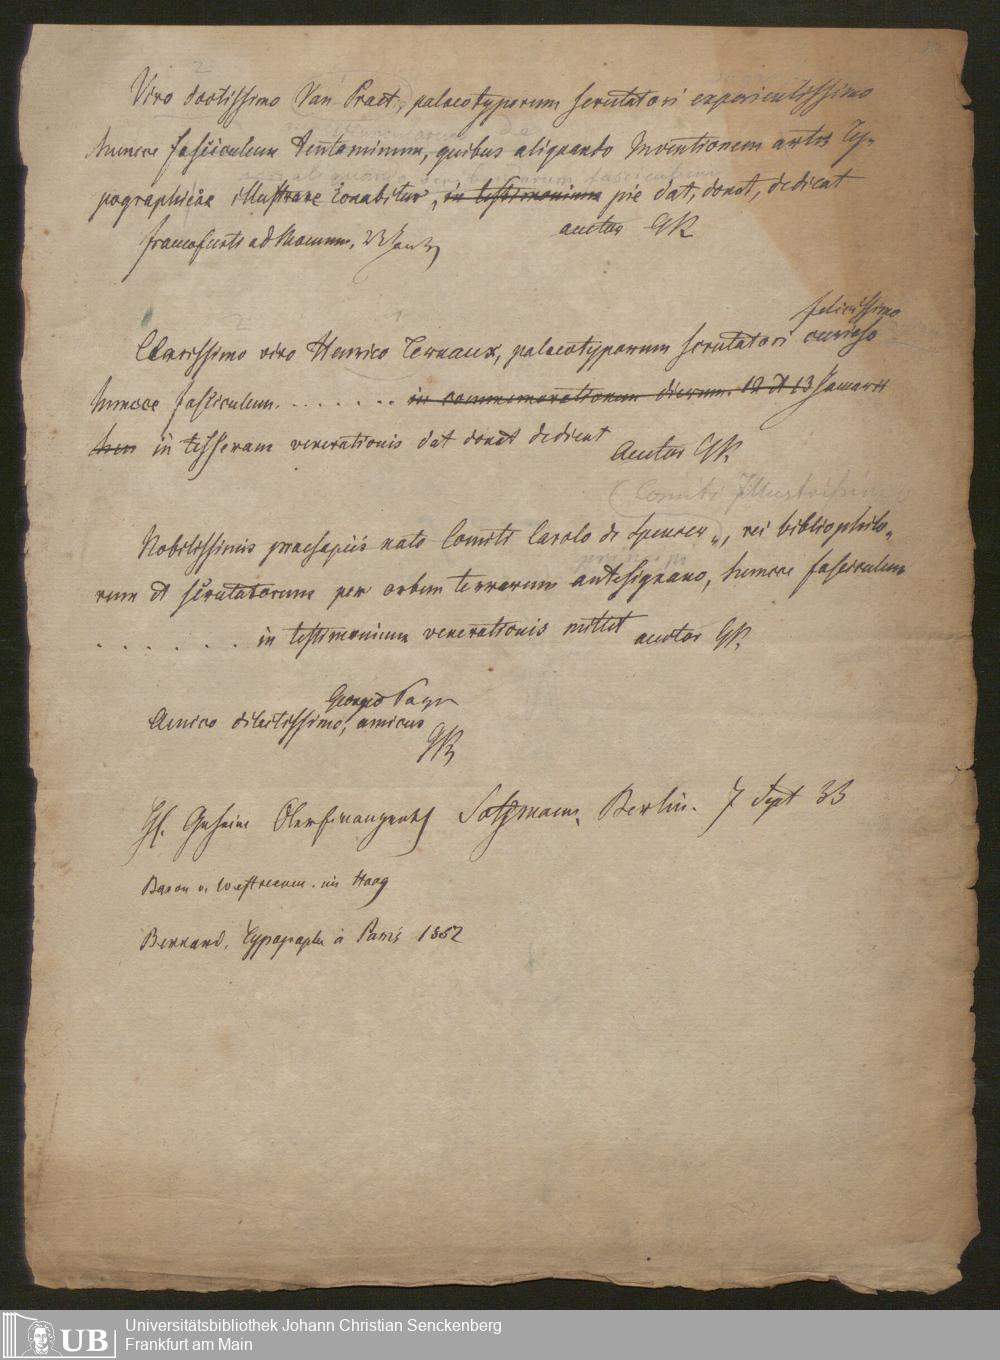 Viro doctissimo Van Praet, palaeotyporum scrutatori experientissimo
huncce fasciculum tentaminum, quibus aliquando Inventionem artis Ty-
pographicae illustrare conabitur, in testimonium pie dat, donat, dedicat
francofurti ad Moenum,
auctor GK
felicissimo
Clarissimo viro Henrico Ternaux, palaeotyporum scrutatori curioso
huncce fasciculum . . . . . . . . in commemorationem dierum 12 et 13 Januarii
in tesseram venerationis dat donat dedicat
Auctor GK
(Comiti Illustrissimo
Nobilissimis prosapiis nato Comiti Carolo de Spencer, rei bibliophilo-
rum et scrutatorum per orbem terrarum antesignano, huncce fasciculum
. . . . . . . in testimonium venerationis mittit
auctor GK
Georgio
Amico dilectissimo, amicus
GK
Salzmann, Berlin. 7 Sept 33
Baron v. Westreenen. im Haag
Bernard, Typographe à Paris 1852
Universitätsbibliothek Johann Christian Senckenberg
Frankfurt am Main
UB